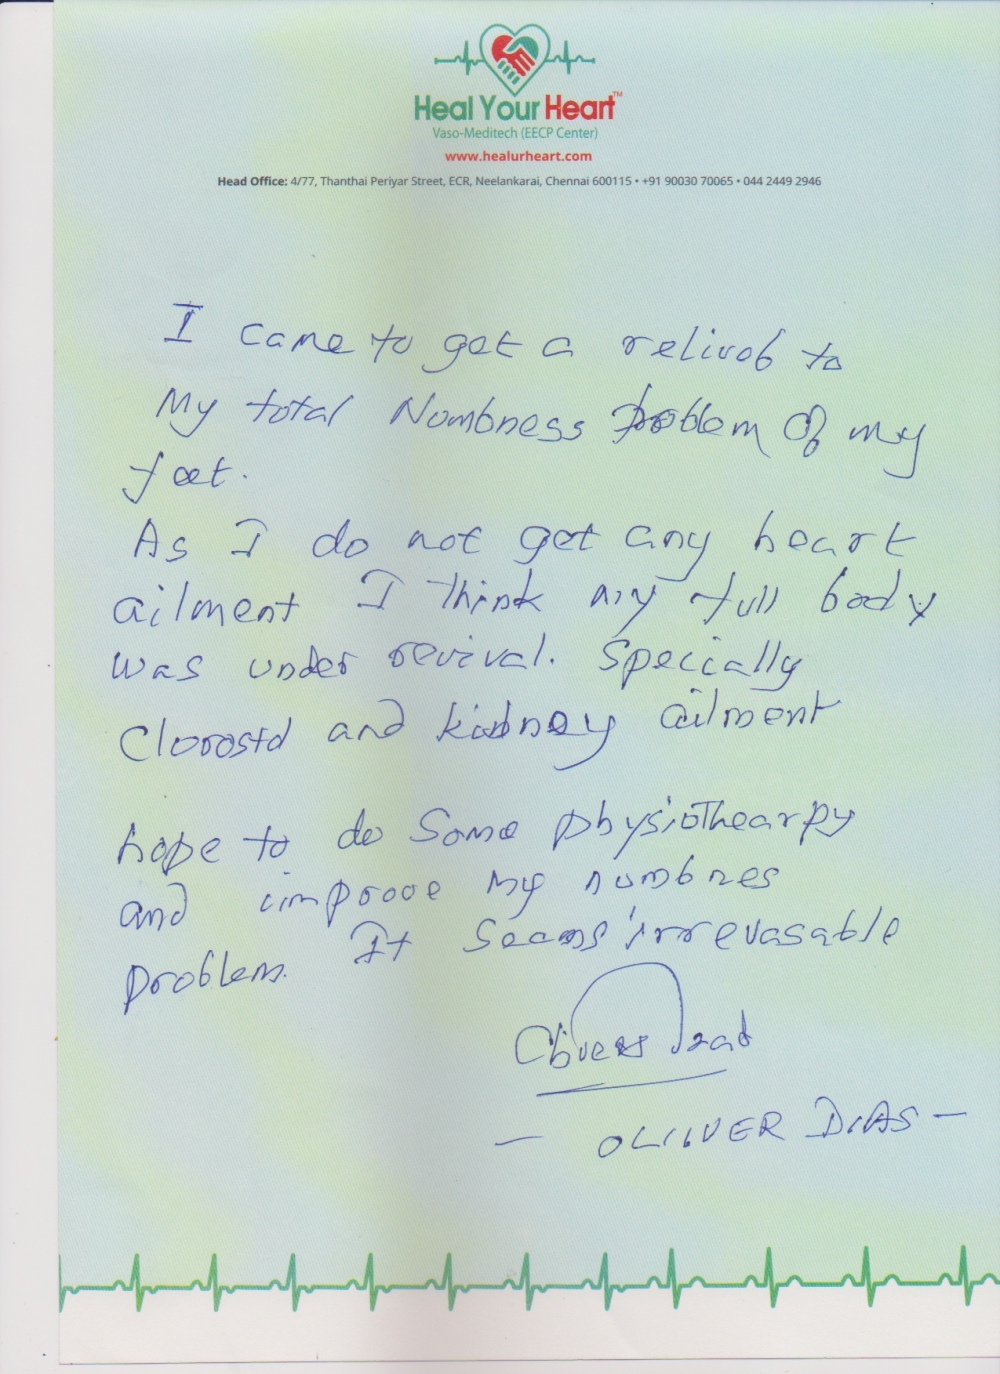 Heal Your Heart™
Vaso-Meditech (EECP Center)
www.healurheart.com
Head Office: 4/77, Thanthai Periyar Street, ECR, Neelankarai, Chennai 600115 • +91 90030 70065 • 044 2449 2946
I came to get a relivob to
My total Nombness Problem Of my
feet.
As I do not get any heart
ailment I think my full body
was under revival. Specially
Clorostd and kidney ailment
hope to do some physiothearpy
and improove my numbnes
problem. It seems irrevasable
- OLIIVER DIAS -